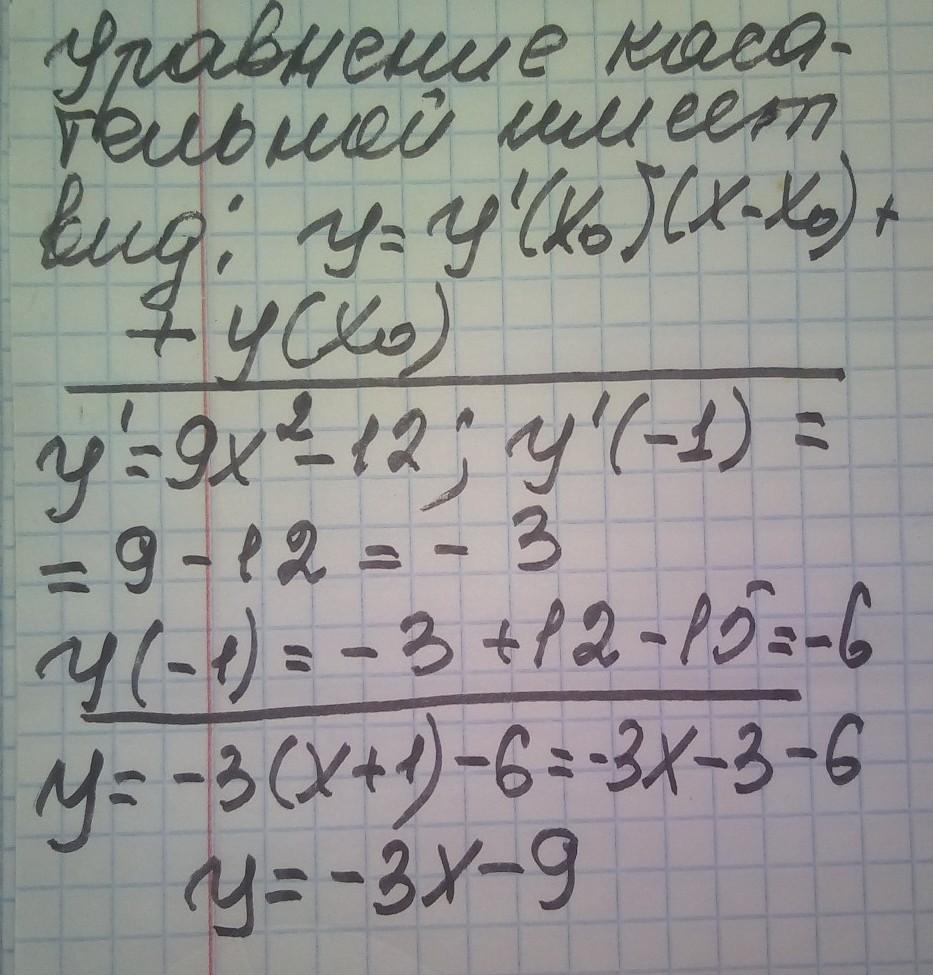 Уравнение каса-
тельной имеет
вид: y= y'(x₀)(x-x₀)+
+ y(x₀)
y'=9x²-12; y'(-1) =
= 9 - 12 = - 3
y(-1) = - 3 +12 -15=-6
y= -3(x+1)-6=-3x-3-6
y= -3x-9